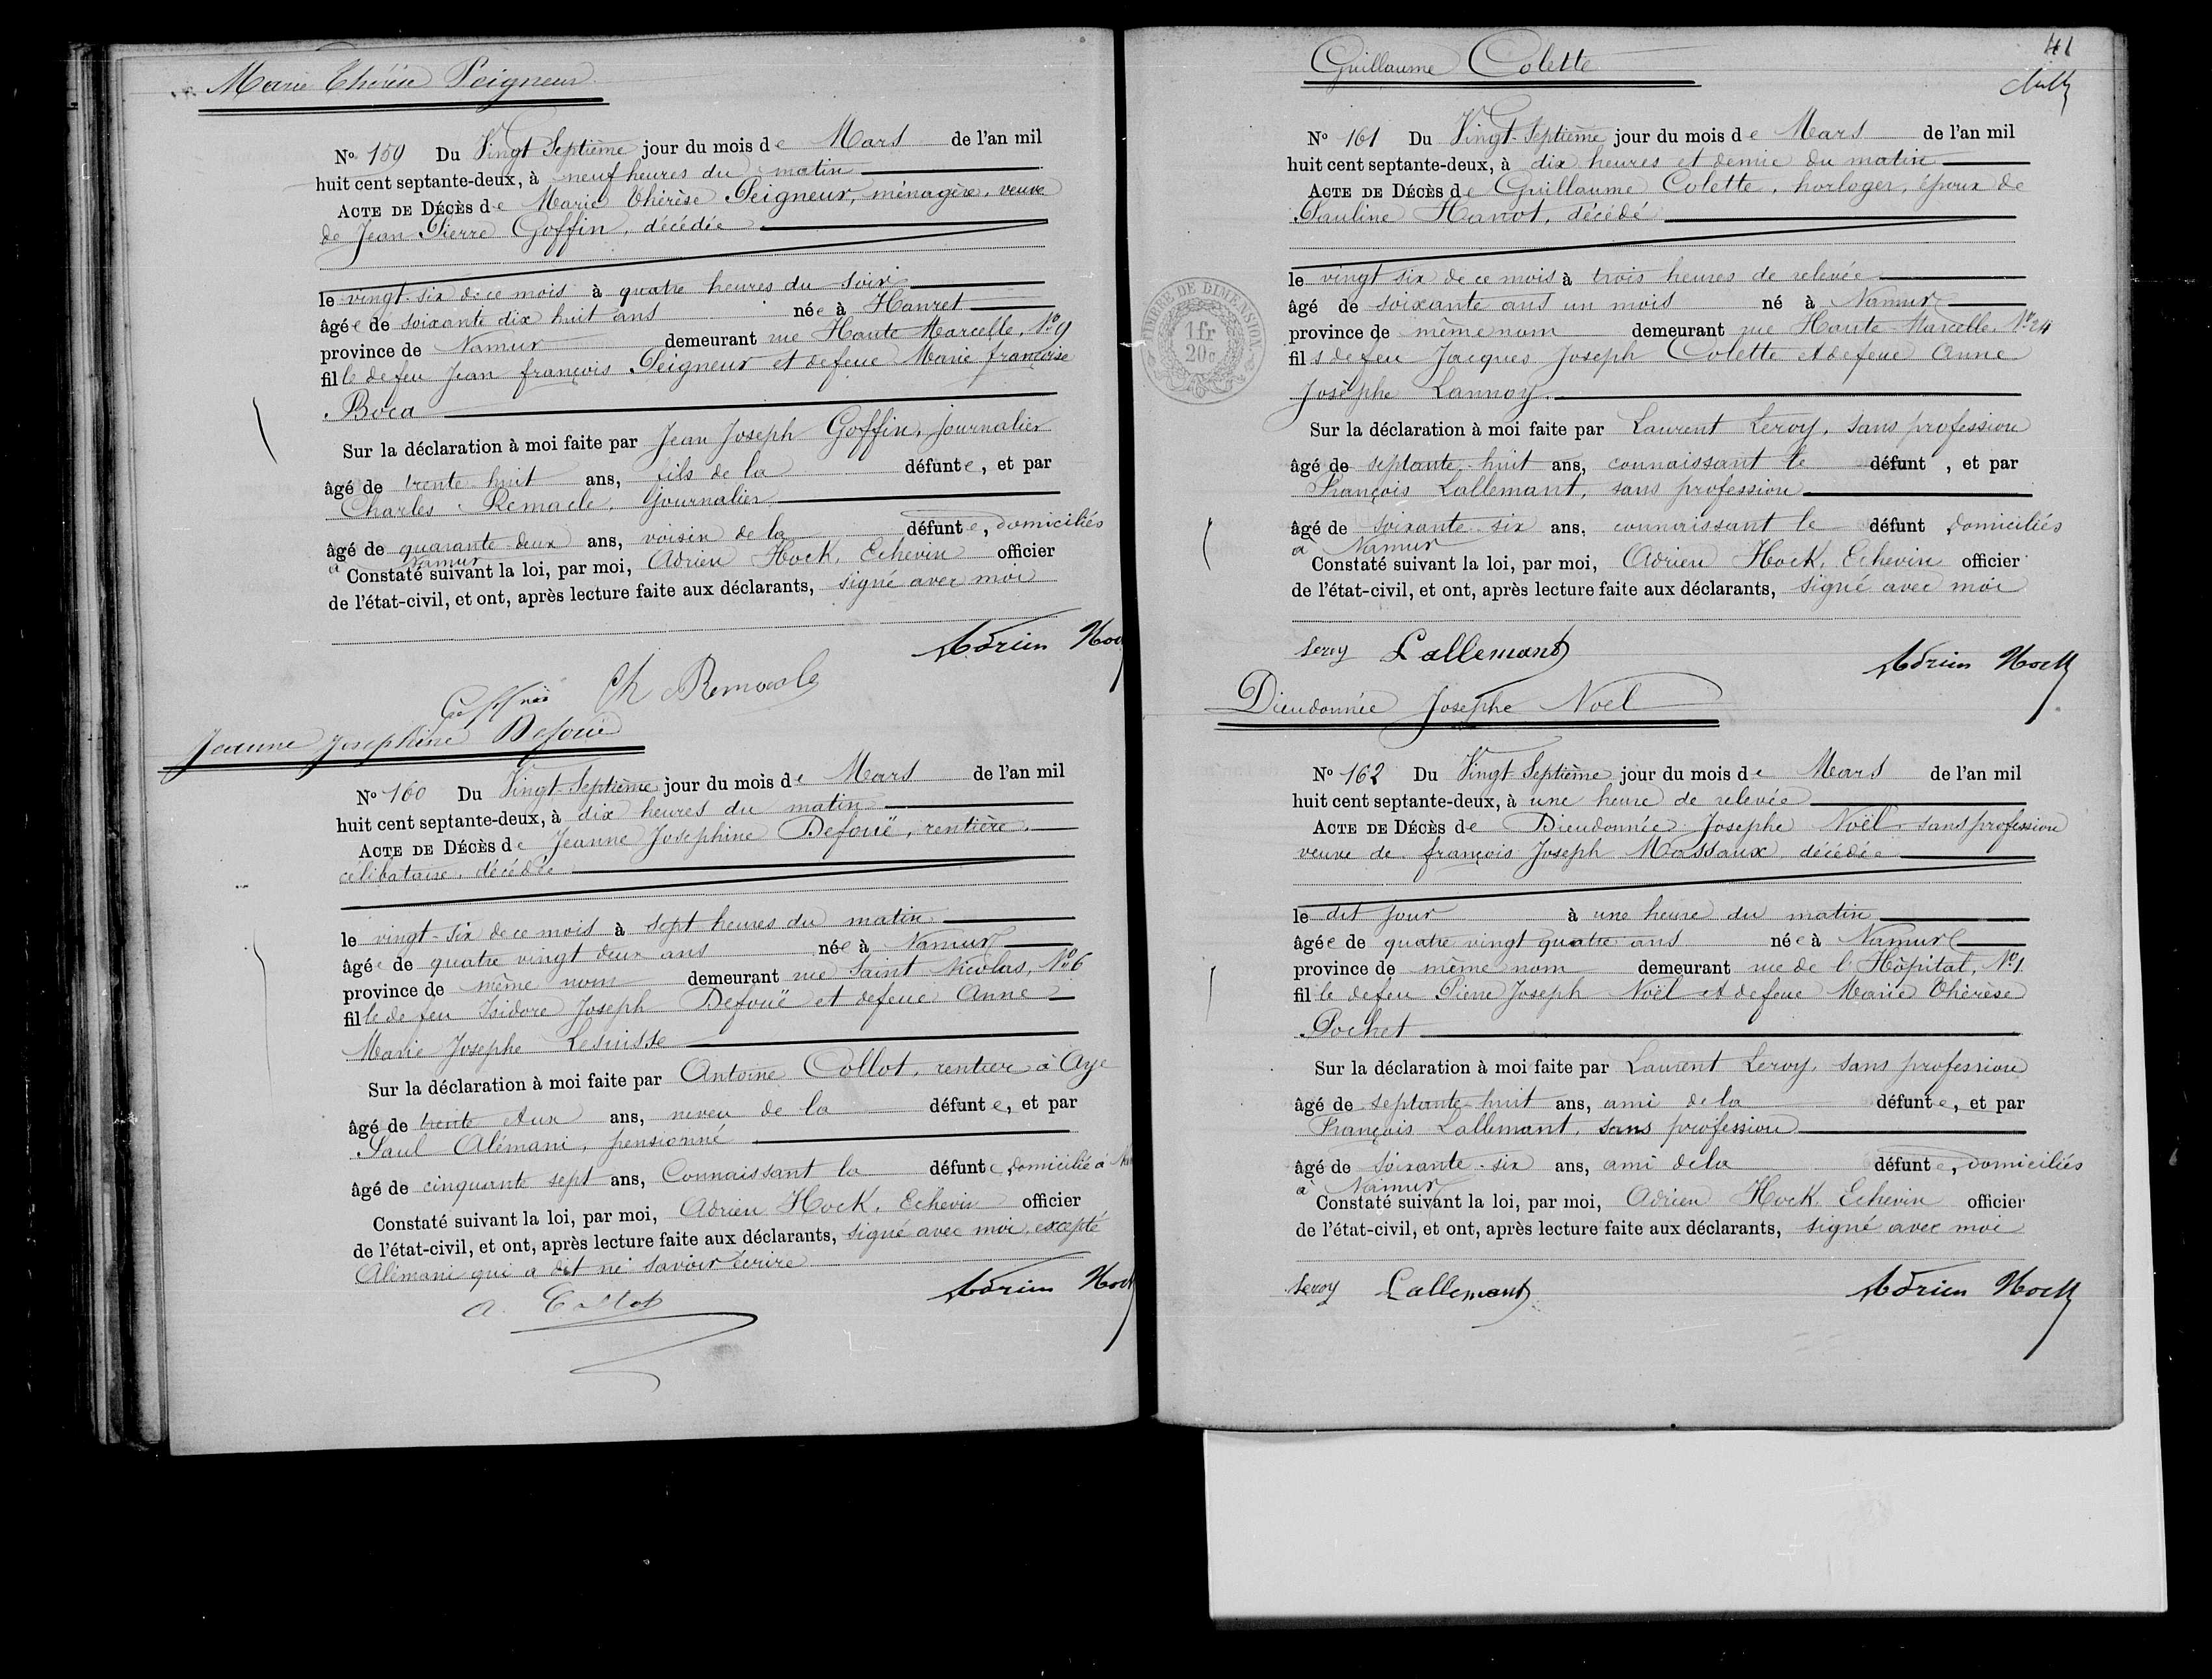 Marie Thérèse Peigneur
No 159 Du Vingt Septième jour du mois de Mars de l'an mil
huit cent septante-deux, à neuf heures du matin
ACTE DE DÉCÈS de Marie Thérèse Peigneur, ménagère, veuve
de Jean Pierre Goffin, décédée
le vingt-six de ce mois à quatre heures du soir
âgée de soixante dix huit ans née à Hanret
province de Namur demeurant rue Haute Marcelle, No 9
fille de feu Jean françois Peigneur et de feue Marie françoise
Boca
Sur la déclaration à moi faite par Jean Joseph Goffin, journalier
âgé de trente-huit ans, fils de la défunte, et par
Charles Remacle, Journalier
âgé de quarante-deux ans, voisin de la défunte, domiciliés
à Namur
Constaté suivant la loi, par moi, Adrien Hock, Echevin officier
de l'état-civil, et ont, après lecture faite aux déclarants, signé avec moi
Adrien Hock
Goffin Ch Remacle
Jeanne Josephine Defouë
No 160 Du Vingt-Septième jour du mois de Mars de l'an mil
huit cent septante-deux, à dix heures du matin
ACTE DE DÉCÈS de Jeanne Josephine Defouë, rentière,
célibataire, décédée
le vingt-six de ce mois à sept heures du matin
âgée de quatre vingt deux ans née à Namur
province de même nom demeurant rue Saint Nicolas, No 6
fille de feu Isidore Joseph Defouë et de feue Anne
Marie Josephe Lesuisse
Sur la déclaration à moi faite par Antoine Collot, rentier à Aye
âgé de trente deux ans, neveu de la défunte, et par
Paul Alémani, pensionné
âgé de cinquante sept ans, Connaissant la défunte, domicilié à
Constaté suivant la loi, par moi, Adrien Hock, Echevin officier
de l'état-civil, et ont, après lecture faite aux déclarants, signé avec moi, excepté
Alémani qui a dit ne savoir écrire
Adrien Hock
A. Collot
41
Guillaume Colette
TIMBRE DE DIMENSION
1 fr
20 c
No 161 Du Vingt-Septième jour du mois de Mars de l'an mil
huit cent septante-deux, à dix heures et demie du matin
ACTE DE DÉCÈS de Guillaume Colette, horloger, époux de
Pauline Hanot, décédé
le vingt six de ce mois à trois heures de relevée
âgé de soixante ans un mois né à Namur
province de même nom demeurant rue Haute-Marcelle, No 24
fils de feu Jacques Joseph Colette et de feue Anne
Josèphe Lannoy.
Sur la déclaration à moi faite par Laurent Leroy, sans profession
âgé de septante-huit ans, connaissant le défunt, et par
François Lallemant, sans profession
âgé de soixante-six ans, connaissant le défunt, domiciliés
à Namur
Constaté suivant la loi, par moi, Adrien Hock, Echevin officier
de l'état-civil, et ont, après lecture faite aux déclarants, signé avec moi
Leroy Lallemant Adrien Hock
Dieudonnée Josephe Noel
No 162 Du Vingt-Septième jour du mois de Mars de l'an mil
huit cent septante-deux, à une heure de relevée
ACTE DE DÉCÈS de Dieudonnée Josephe Noël, sans profession
veuve de françois Joseph Massaux, décédée
le dit jour à une heure du matin
âgée de quatre vingt quatre ans née à Namur
province de même nom demeurant rue de l'Hôpital, No 1
fille de feu Pierre Joseph Noël et de feue Marie Thérèse
Pochet
Sur la déclaration à moi faite par Laurent Leroy, sans profession
âgé de septante-huit ans, ami de la défunte, et par
François Lallemant, sans profession
âgé de soixante-six ans, ami de la défunte, domiciliés
à Namur
Constaté suivant la loi, par moi, Adrien Hock, Echevin officier
de l'état-civil, et ont, après lecture faite aux déclarants, signé avec moi
Leroy Lallemant Adrien Hock